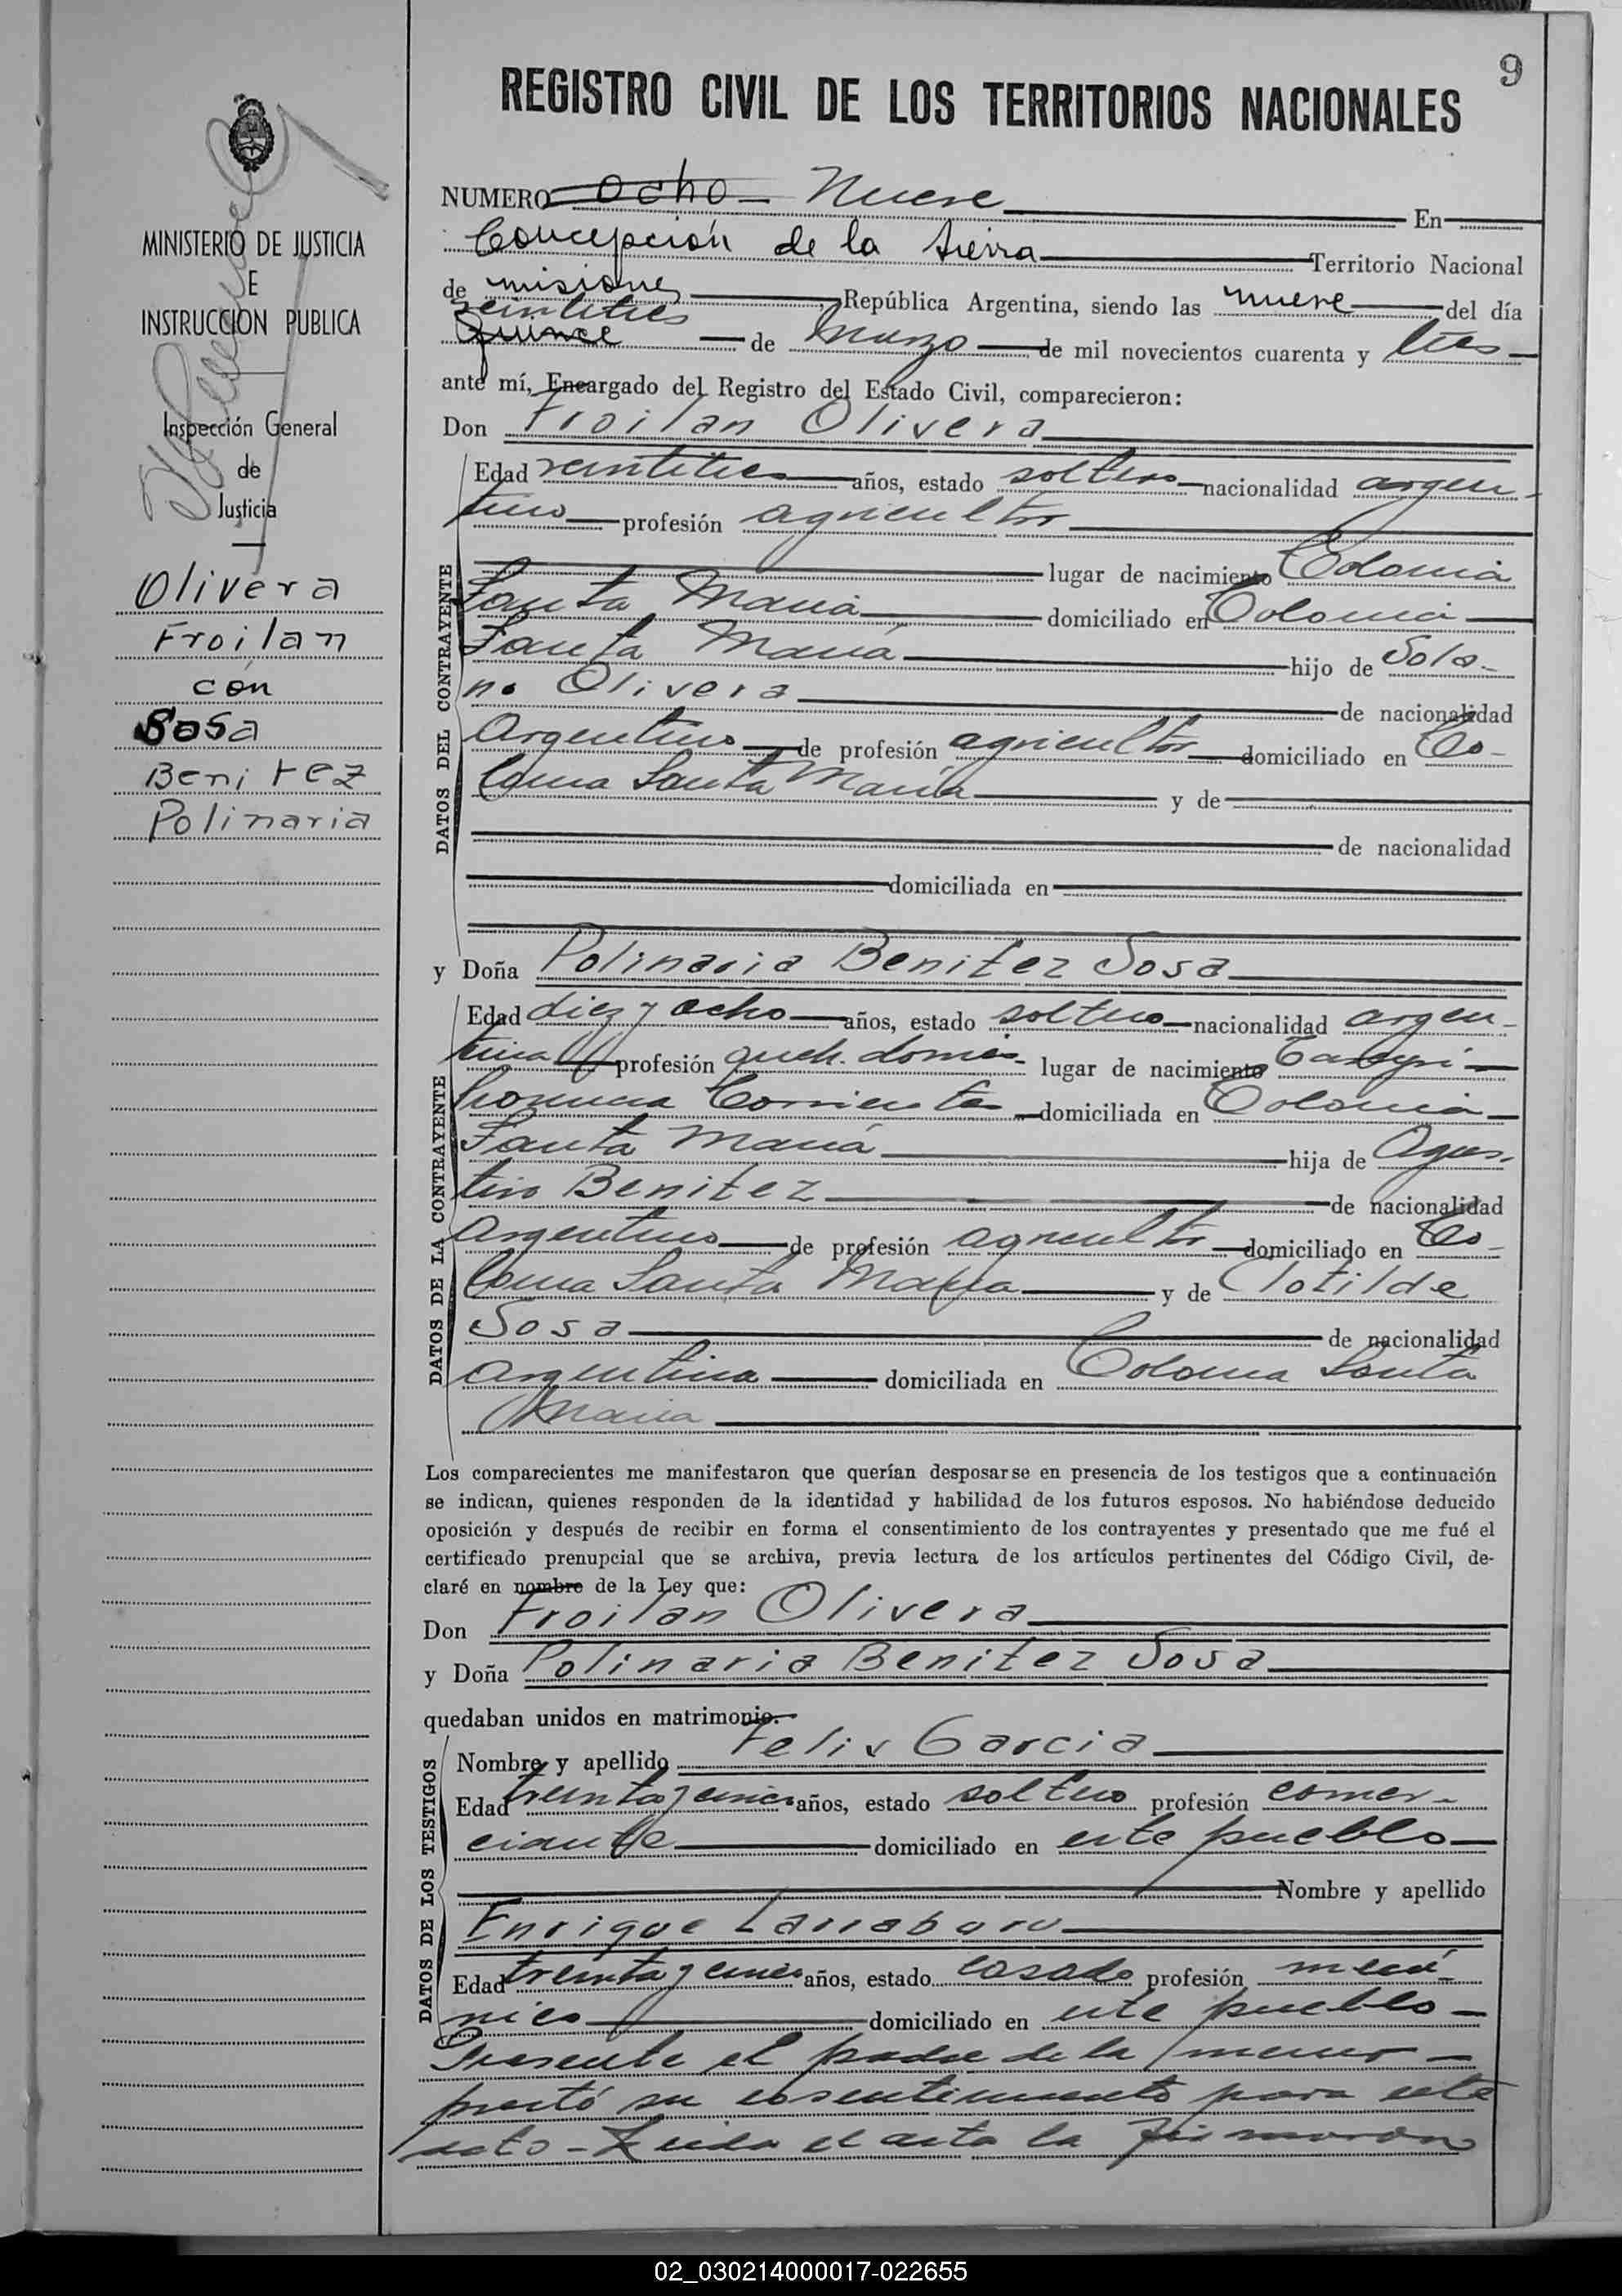 9
REGISTRO CIVIL DE LOS TERRITORIOS NACIONALES
MINISTERIO DE JUSTICIA
E
INSTRUCCION PUBLICA
Inspección General
de
Justicia
Olivera
Froilan
con
Sosa
Benitez
Polinaria
NUMERO Ocho - Nueve En
Concepción de la Sierra Territorio Nacional
de misiones, República Argentina, siendo las nueve del día
veintitres
quince de Marzo de mil novecientos cuarenta y tres
ante mí, Encargado del Registro del Estado Civil, comparecieron:
Don Froilan Olivera
DATOS DEL CONTRAYENTE
Edad veintitres años, estado soltero nacionalidad argen-
tino profesión agricultor
lugar de nacimiento Colonia
Santa María domiciliado en Colonia
Santa María hijo de Sola-
no Olivera de nacionalidad
Argentino de profesión agricultor domiciliado en Co-
lonia Santa María y de
de nacionalidad
domiciliada en
y Doña Polinaria Benitez Sosa
DATOS DE LA CONTRAYENTE
Edad diez y ocho años, estado soltera nacionalidad argen-
tina profesión queh. domés. lugar de nacimiento
Corrientes domiciliada en Colonia
Santa María hija de Agus-
tin Benitez de nacionalidad
Argentino de profesión agricultor domiciliado en Co-
lonia Santa María y de Clotilde
Sosa de nacionalidad
argentina domiciliada en Colonia Santa
María
Los comparecientes me manifestaron que querían desposarse en presencia de los testigos que a continuación
se indican, quienes responden de la identidad y habilidad de los futuros esposos. No habiéndose deducido
oposición y después de recibir en forma el consentimiento de los contrayentes y presentado que me fué el
certificado prenupcial que se archiva, previa lectura de los artículos pertinentes del Código Civil, de-
claré en nombre de la Ley que:
Don Froilan Olivera
y Doña Polinaria Benitez Sosa
quedaban unidos en matrimonio.
DATOS DE LOS TESTIGOS
Nombre y apellido Felix Garcia
Edad treinta y cinco años, estado soltero profesión comer-
ciante domiciliado en este pueblo
Nombre y apellido
Enrique Larraburu
Edad treinta y cinco años, estado casado profesión mecá-
nico domiciliado en este pueblo
Presente el padre de la menor
prestó su cosentimiento para este
acto - Leida el acta la firmaron
02_030214000017-022655